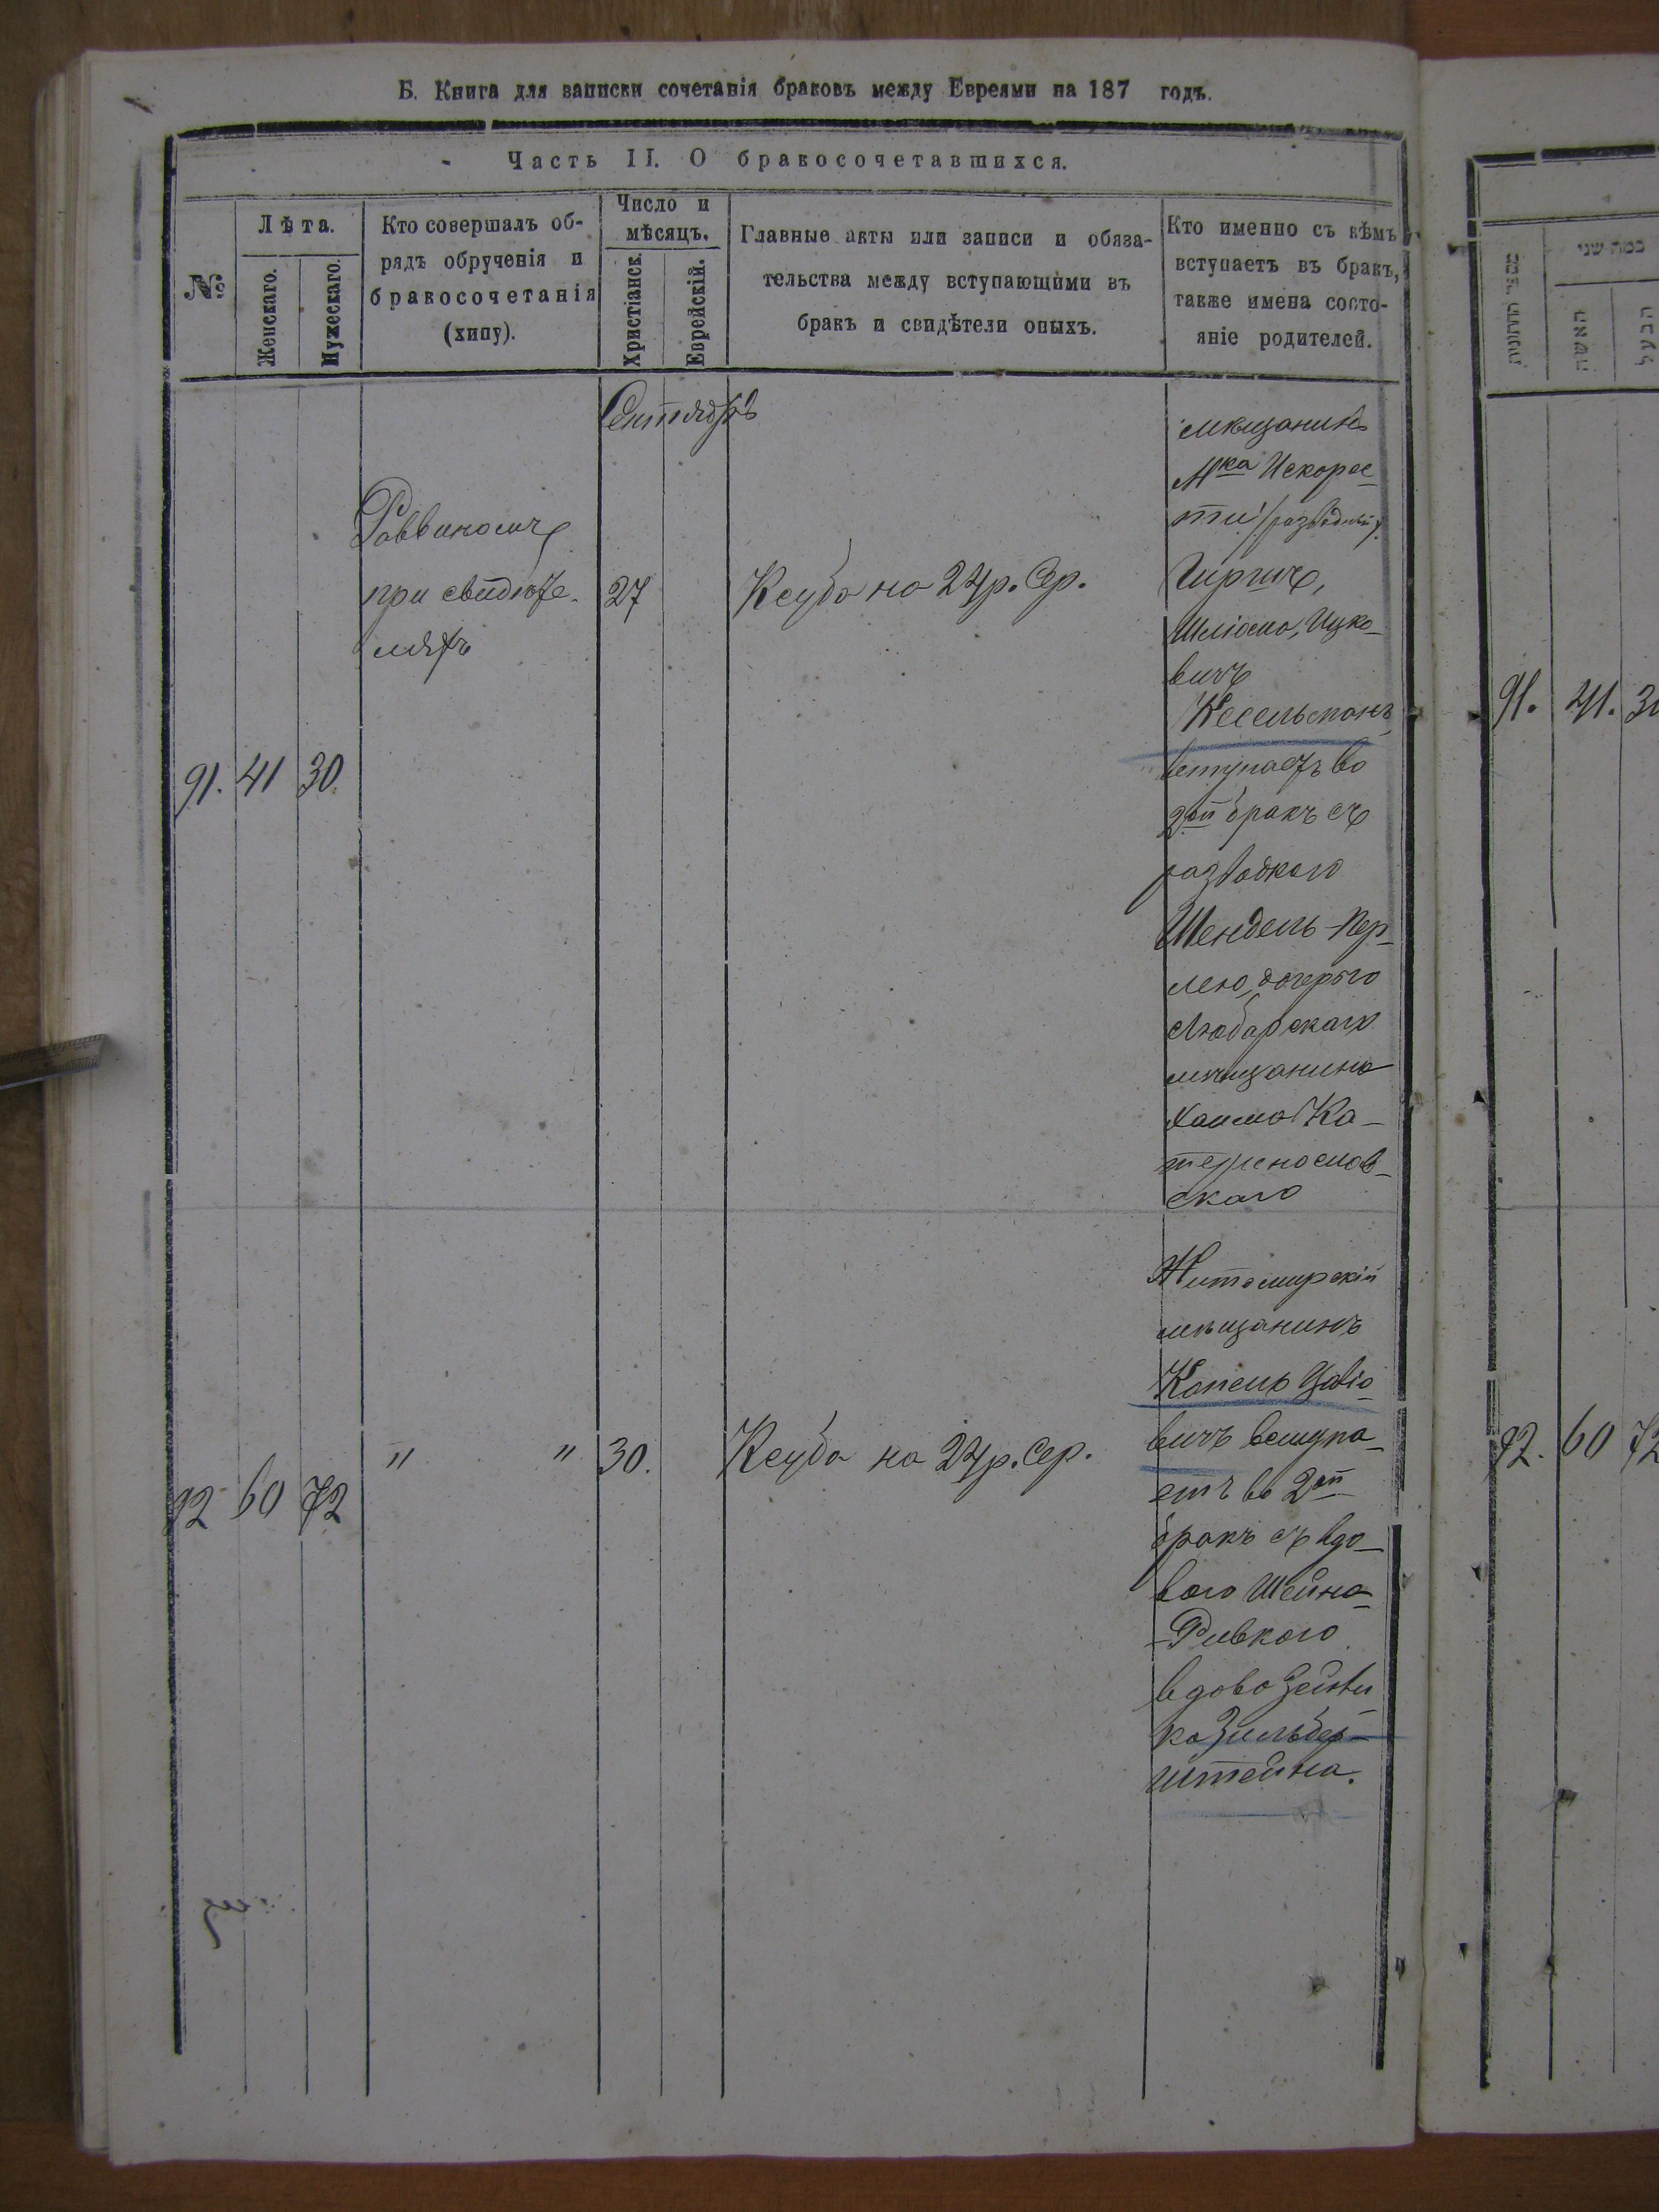 Б. Книга для записки сочетанія браковъ между Евреями на 187 годъ.
Часть II. О бракосочетавшихся.
№
Лѣта.
Женскаго.
Мужескаго.
Кто совершалъ об-
рядъ обрученія и
бракосочетанія
(хипу).
Число и
мѣсяцъ.
Христіанск.
Еврейскій.
Главные акты или записи и обяза-
тельства между вступающими въ
бракъ и свидѣтели оныхъ.
Кто именно съ кѣмъ
вступаетъ въ бракъ,
также имена состо-
яніе родителей.
Сентябрь
91. 41 30.
Раввиномъ
при свидѣте-
ляхъ
27
Ксуба на 24 р. Сер.
мѣщанинъ
Мка Искорос-
ти /разводный/
Гиршъ,
Шліома, Ицко-
вичъ
Кесельманъ
вступаетъ во
2ой бракъ съ
разводкою
Шендель-Пер-
лею, дочерью
Любарскаго
мѣщанина
Хаима Ка-
скаго
92 60 72
" "
30.
Ксуба на 24 р. Сер.
Житомирскій
мѣщанинъ
Копель
вичъ вступа-
етъ во 2ой
бракъ съ вдо-
вою Шейна-
-Ривкою
вдова
ка Зильбер-
штейна.
מספר החתונות
כמה שני
האשה
הבעל
91. 41. 30
92. 60 72